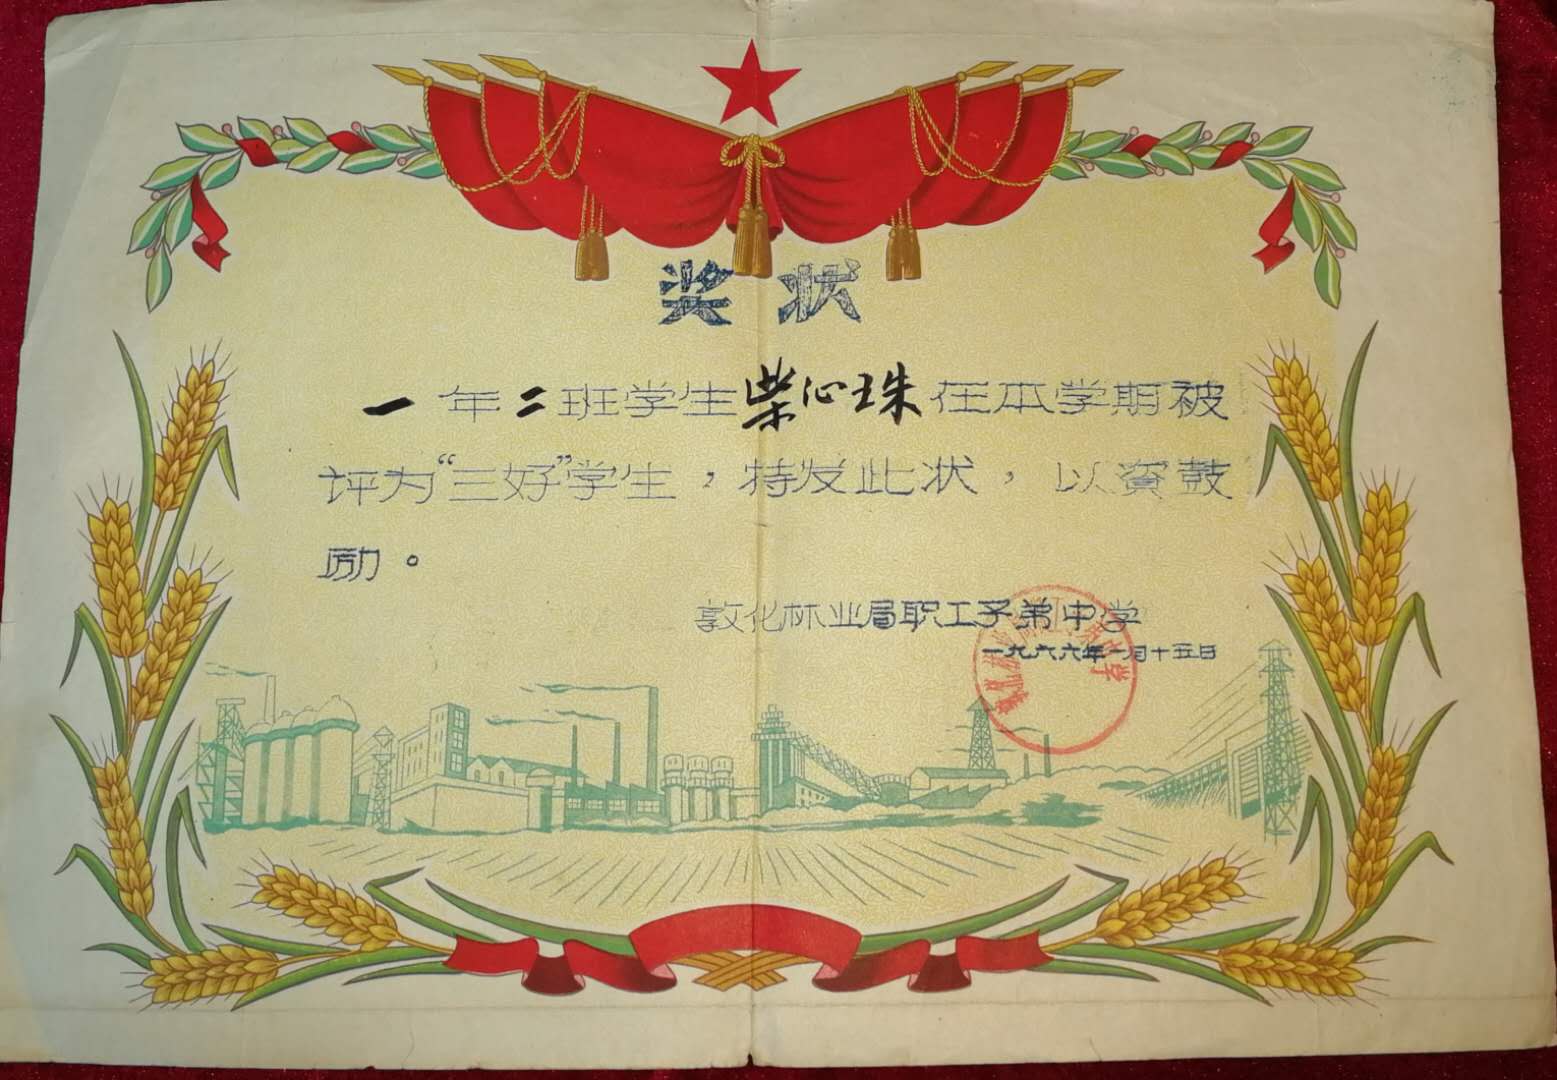 奖状
一年二班学生柴心珠在本学期被
评为“三好”学生，特发此状，以资鼓
励。
敦化林业局职工子弟中学
一九六六年一月十五日